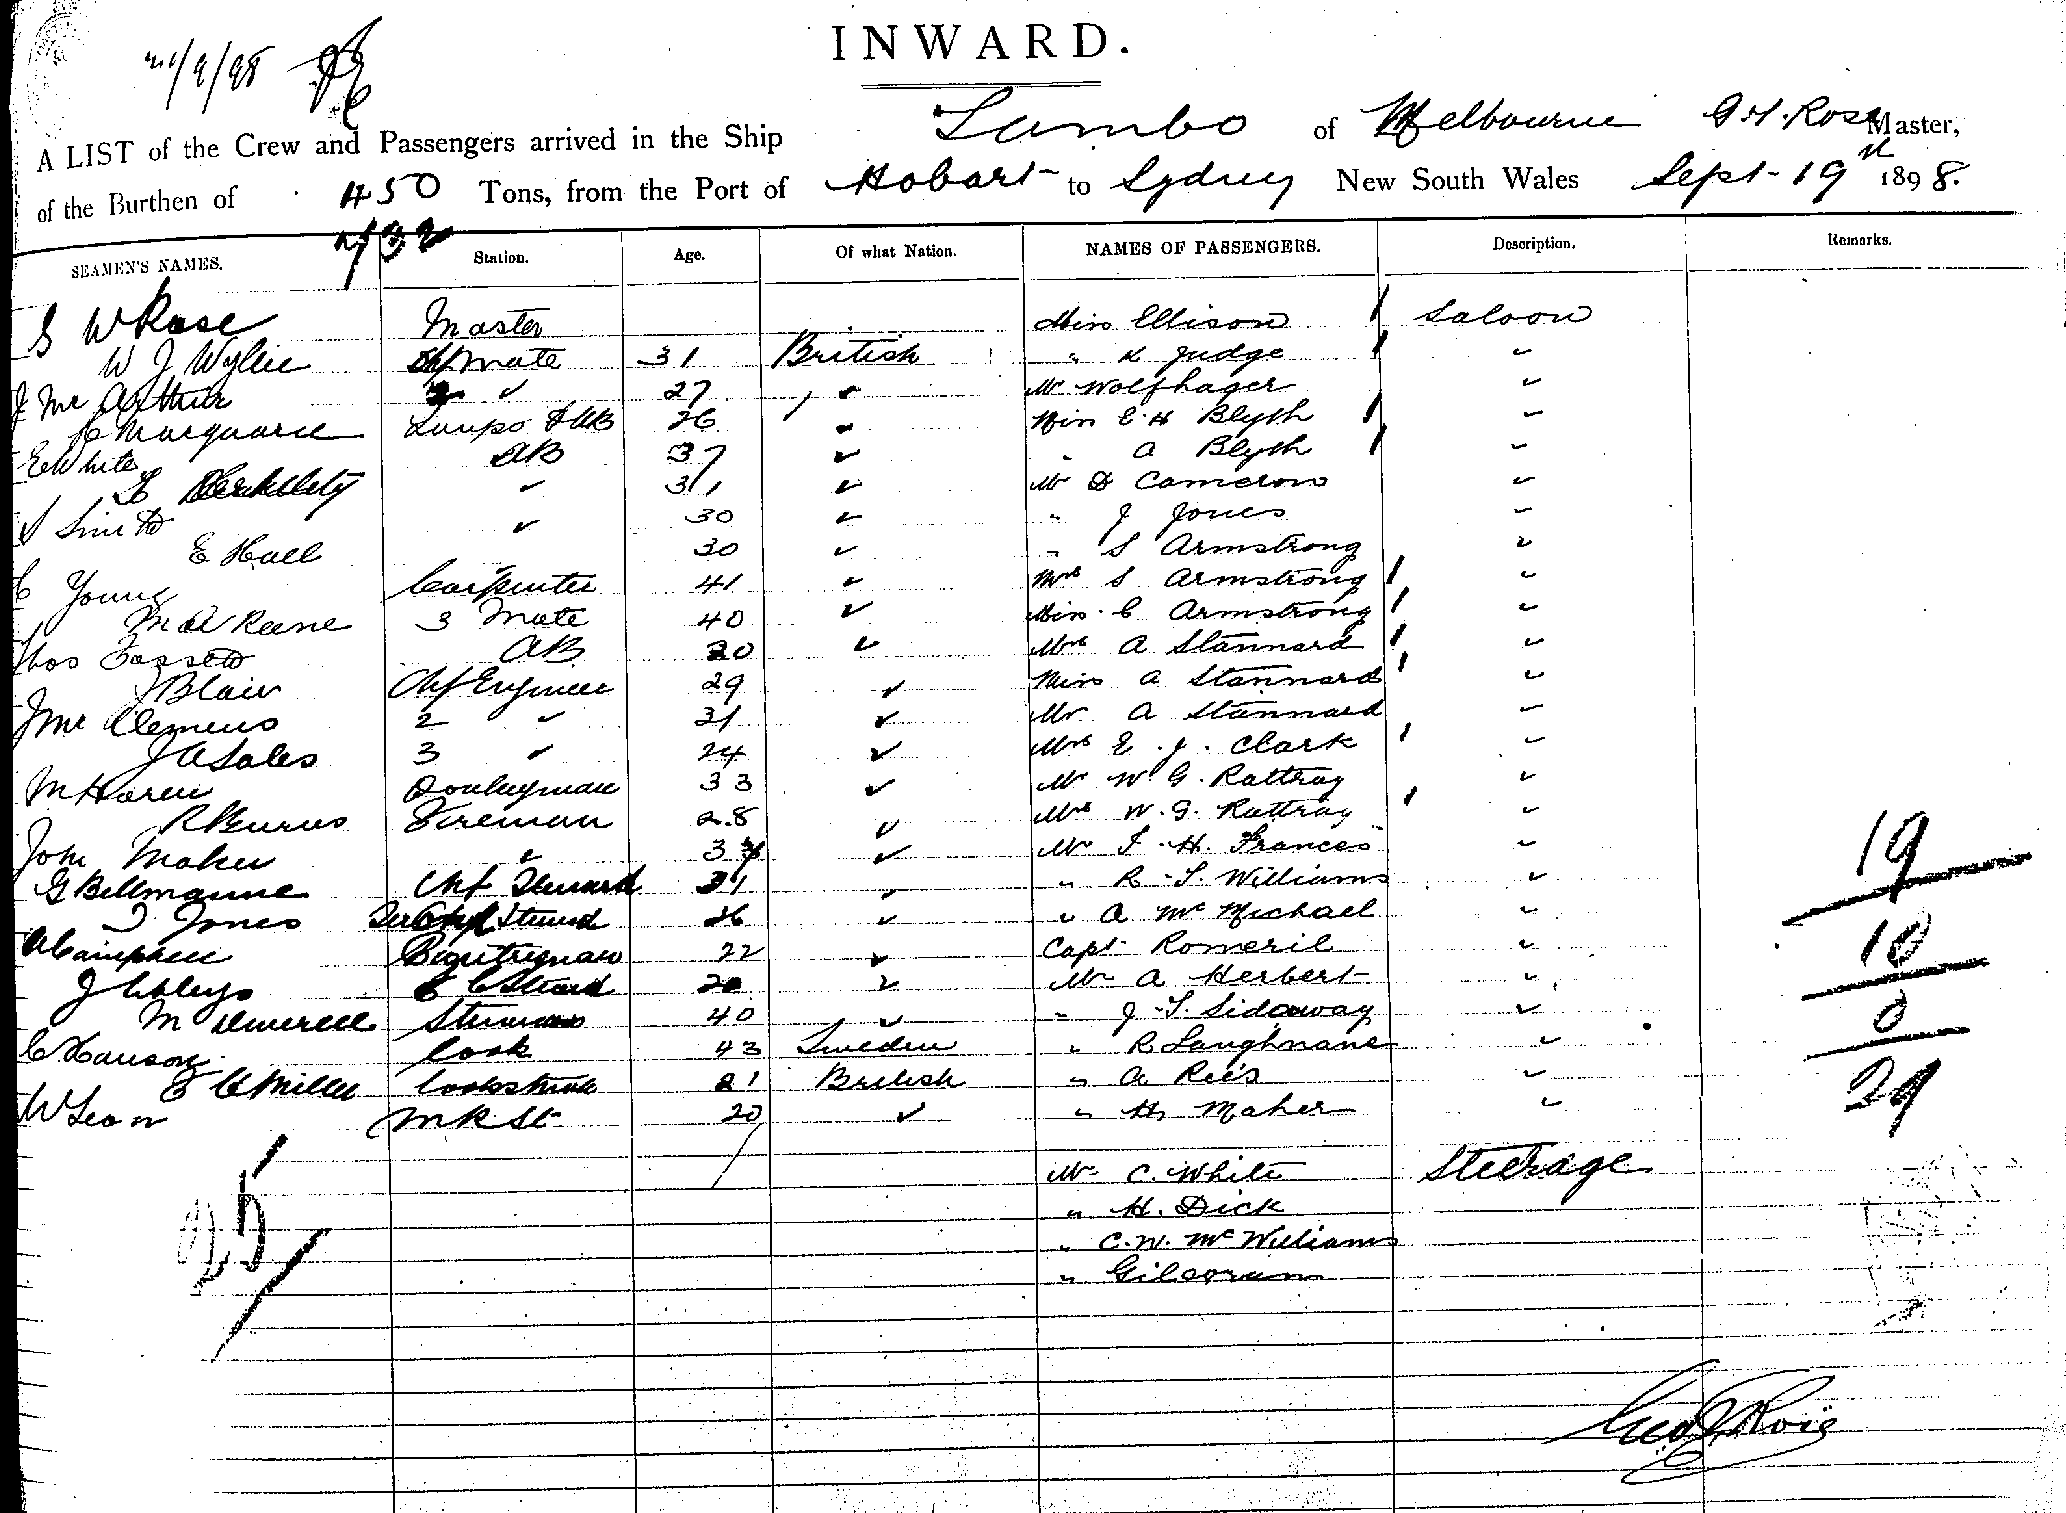 INWARD.
21/9/98
A LIST of the Crew and Passengers arrived in the Ship Tambo of Melbourne G. W. Rose Master,
of the Burthen of 450 Tons, from the Port of Hobart to Sydney New South Wales Sept 19th 1898.
732
SEAMEN'S NAMES. Station. Age. Of what Nation. NAMES OF PASSENGERS. Description. Remarks.
G W Rose Master Miss Ellison Saloon
W J Wyllie Chf Mate 31 British " K Judge "
J McArthur 2 " 27 " Mr Wolfhager "
C Macquarie Lamps & AB 26 " Miss E. H Blyth "
E White AB 37 " " A Blyth "
31 " Mr D Cameron "
S Smith " 30 " " J Jones "
E Hall 30 " " S Armstrong "
C Young Carpenter 41 " Mrs S Armstrong "
M A Keene 3 Mate 40 " Miss C Armstrong "
Thos Fassett AB 20 " Mrs A Stannard "
J Blair Chf Engineer 29 " Miss A Stannard "
J McClemens 2 " 31 " Mr A Stannard "
J A Sales 3 " 24 " Mrs E. J. Clark "
M Haren Donkeyman 33 " Mr W. G. Rattray "
R Burns Fireman 28 " Mrs W. G. Rattray "
John Maher " 3 " Mr F. H. Frances "
G Bellmanne Chf Steward 31 " " R. S. Williams "
J Jones Steward 26 " " A McMichael "
A Campbell Pantryman 22 " Capt Romeril "
J 20 " Mr A Herbert "
M 40 " " J. S. Sidaway "
C Hanson Cook 43 Sweden " R Laughnane "
E C Miller Cooks mate 21 British " A Rees "
W Leon M R St 20 " " H. Maher "
Mr C. White Steerage
" H. Dick
" C. W. McWilliams
" Gilcorum
25
19
10
0
29
Geo W Rose